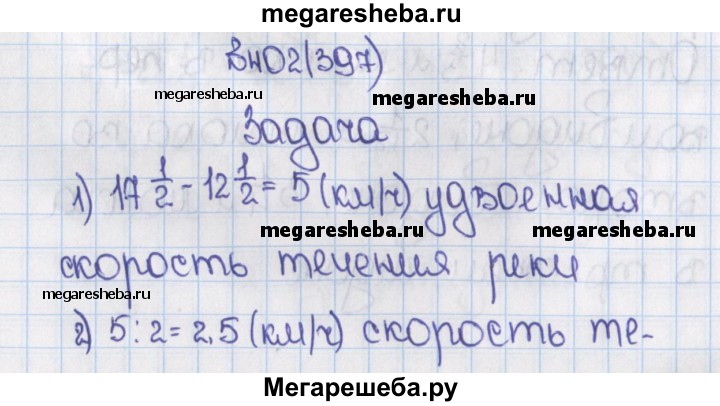 megaresheba.ru
В402(397)
megaresheba.ru
megaresheba.ru
Задача
1) 17 1/2 - 12 1/2 = 5 (км/ч) удвоенная
megaresheba.ru
megaresheba.ru
скорость течения реки
megaresheba.ru
2) 5 : 2 = 2,5 (км/ч) скорость те-
Мегарешеба.ру